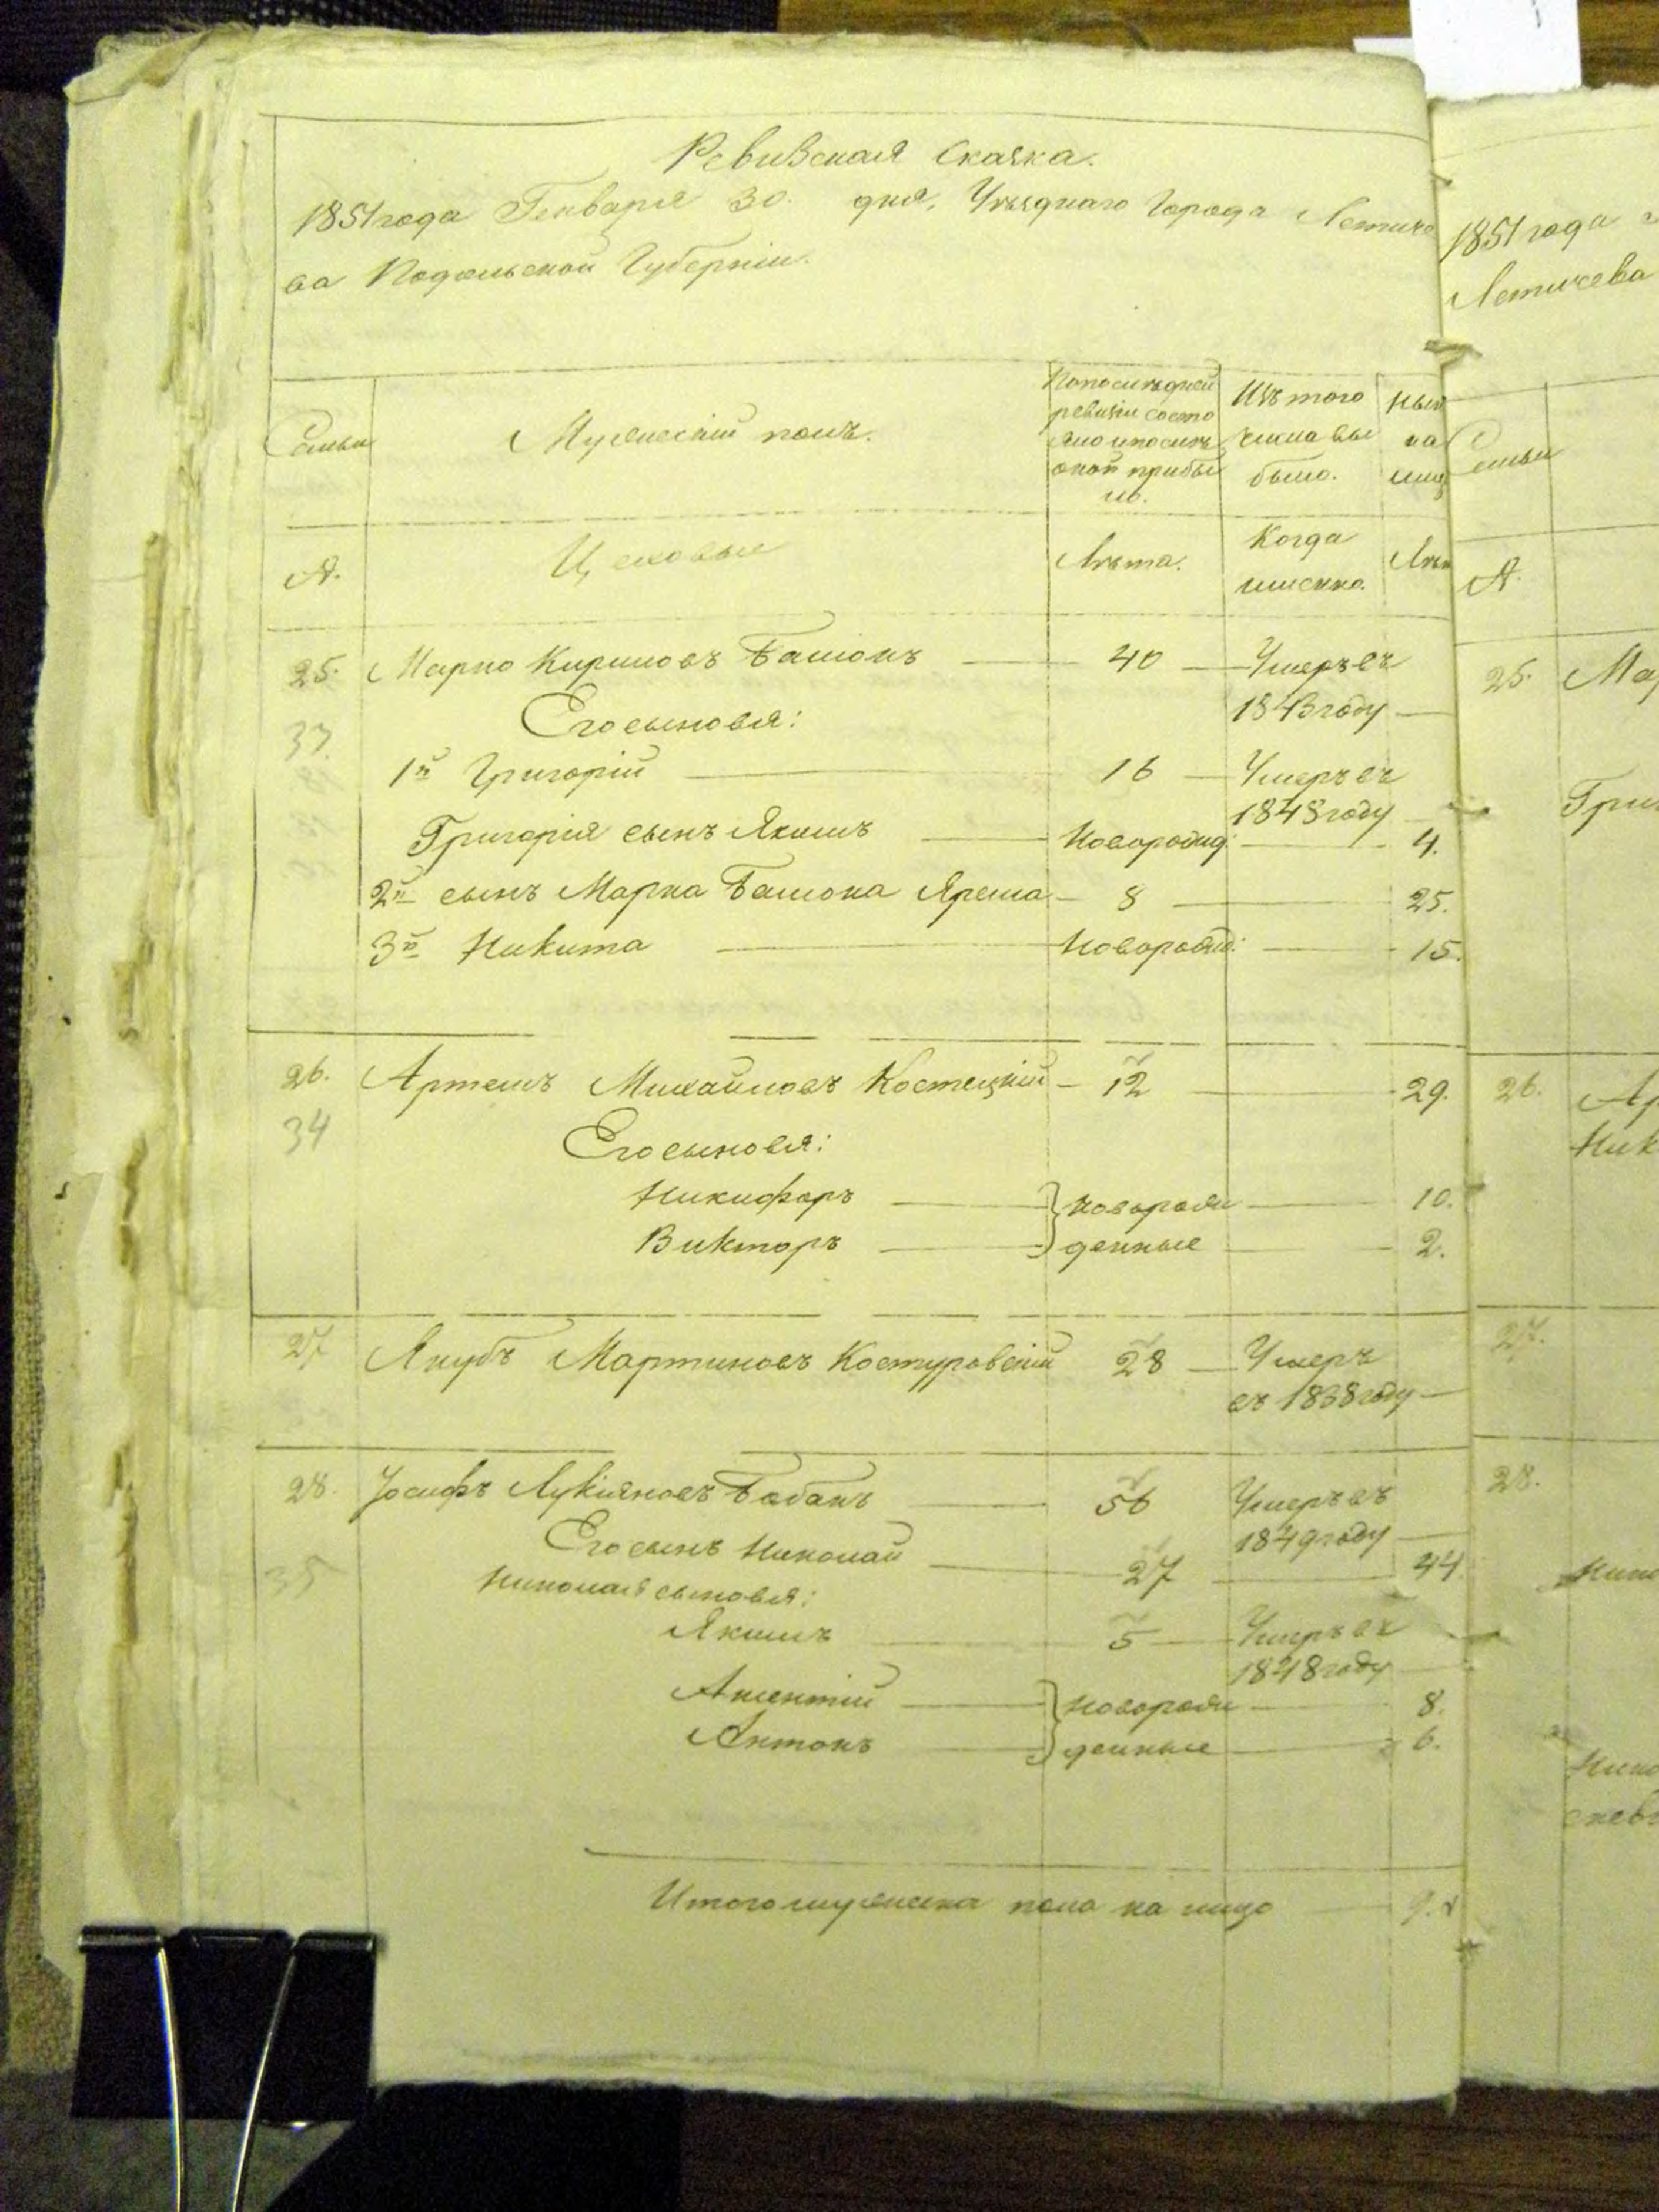 Ревизская Сказка.
1851 года Генваря 30. дня, Уѣзднаго Города Летиче
ва Подольской Губерніи.
Семьи
Мужескій полъ.
По последней
ревизіи состо
яло и после
оной прибы
ло.
Изъ того
числа вы
было.
Ны
на
лиц
А.
Цеховые
Лѣта.
Когда
именно.
Лѣт
25. Марко Кириловъ Балюкъ 40 Умеръ въ
1843 году
33. Его сыновья:
1й Григорій 16 Умеръ въ
1848 году
Григорія сынъ Якимъ Новорожд: 4.
2й сынъ Марка Балюка Ярема 8 25.
3й Никита Новорожд: 15.
26. Артемъ Михайловъ Костецкій 12 29.
34 Его сыновья:
Никифоръ новорож 10.
Викторъ денные 2.
27 Якубъ Мартиновъ Костуровскій 28 Умеръ
въ 1838 году
28. Іосифъ Лукіяновъ Бабакъ 56 Умеръ въ
1849 году
Его сынъ Николай 27 44.
35 Николая сыновья:
Якимъ 5 Умеръ въ
1848 году
Аксентій новорож 8.
Антонъ денные 6.
Итого мужеска пола на лицо 9.
1851 года
Летичева
Семьи
А.
25. Мар
Григ
26. Ар
Ник
27.
28.
Нико
Нико